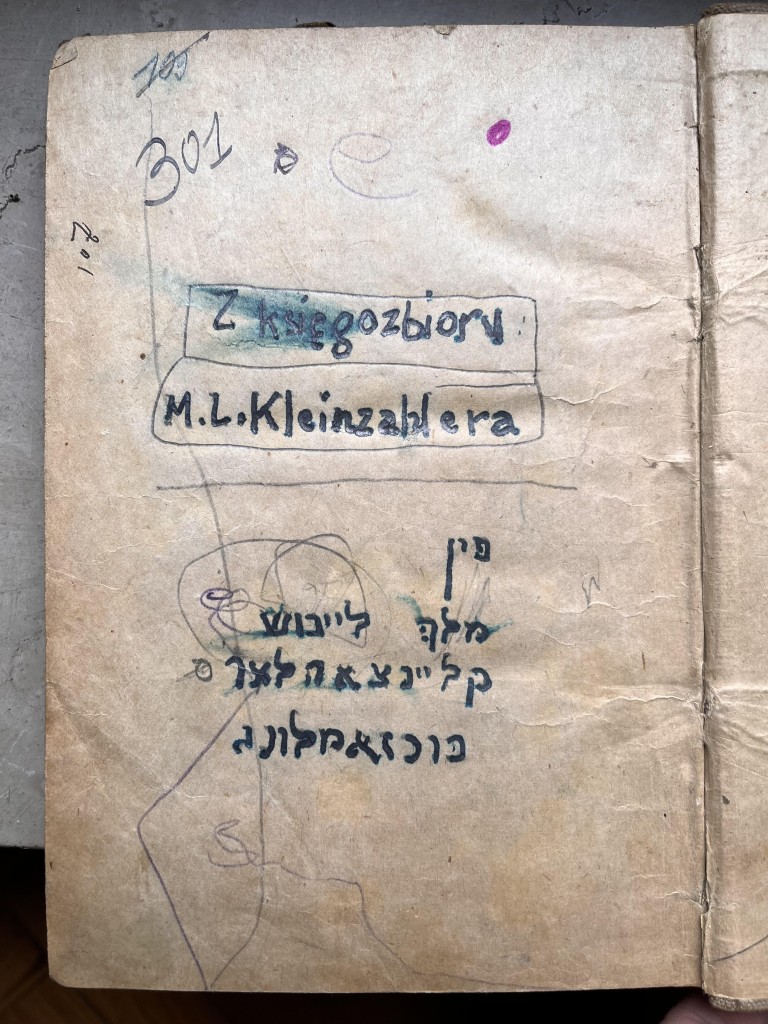 105
301
201
Z księgozbioru
M.L.Kleinzahlera
פין
מלך לייבוש
קליינצאהלער
בוכזאמלונג